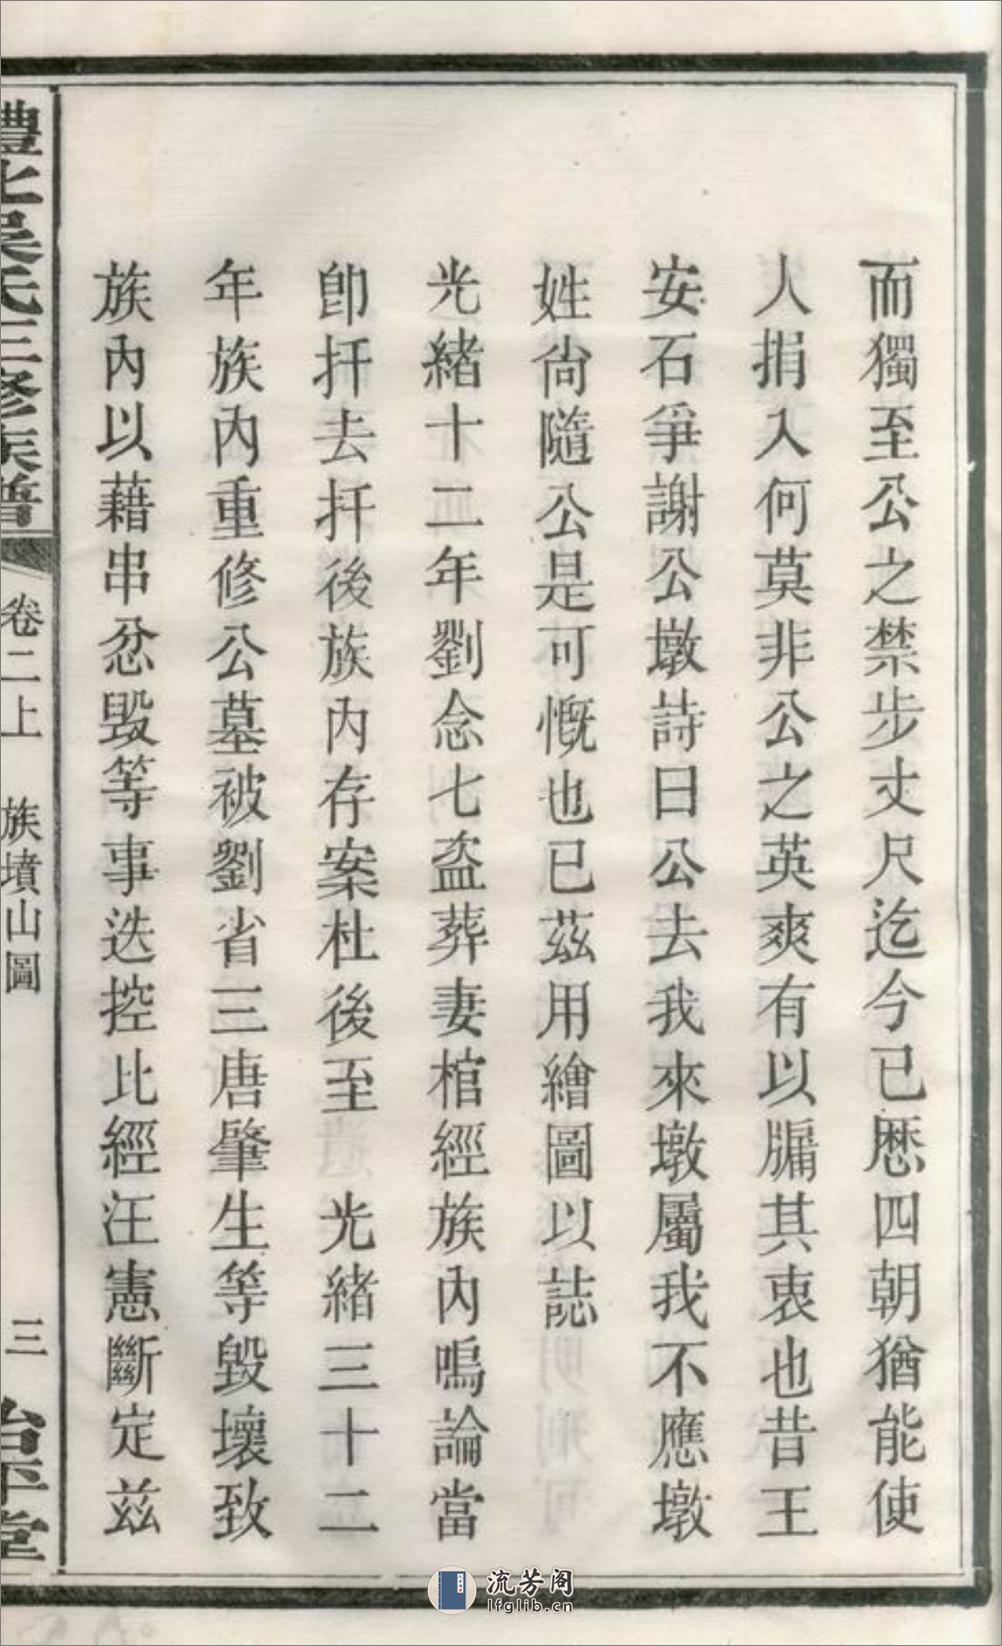 而獨至公之禁步丈尺迄今已歷四朝猶能使
人捐入何莫非公之英爽有以牖其衷也昔王
安石爭謝公墩詩曰公去我來墩屬我不應墩
姓尙隨公是可慨也已茲用繪圖以誌
光緒十二年劉念七盜葬妻棺經族內鳴論當
卽扦去扦後族內存案杜後至 光緒三十二
年族內重修公墓被劉省三唐肇生等毀壞致
族內以藉串忿毀等事迭控比經汪憲斷定茲
禮上吳氏三修族譜
卷二上 族墳山圖
三 治平堂
流芳阁
lfglib.cn